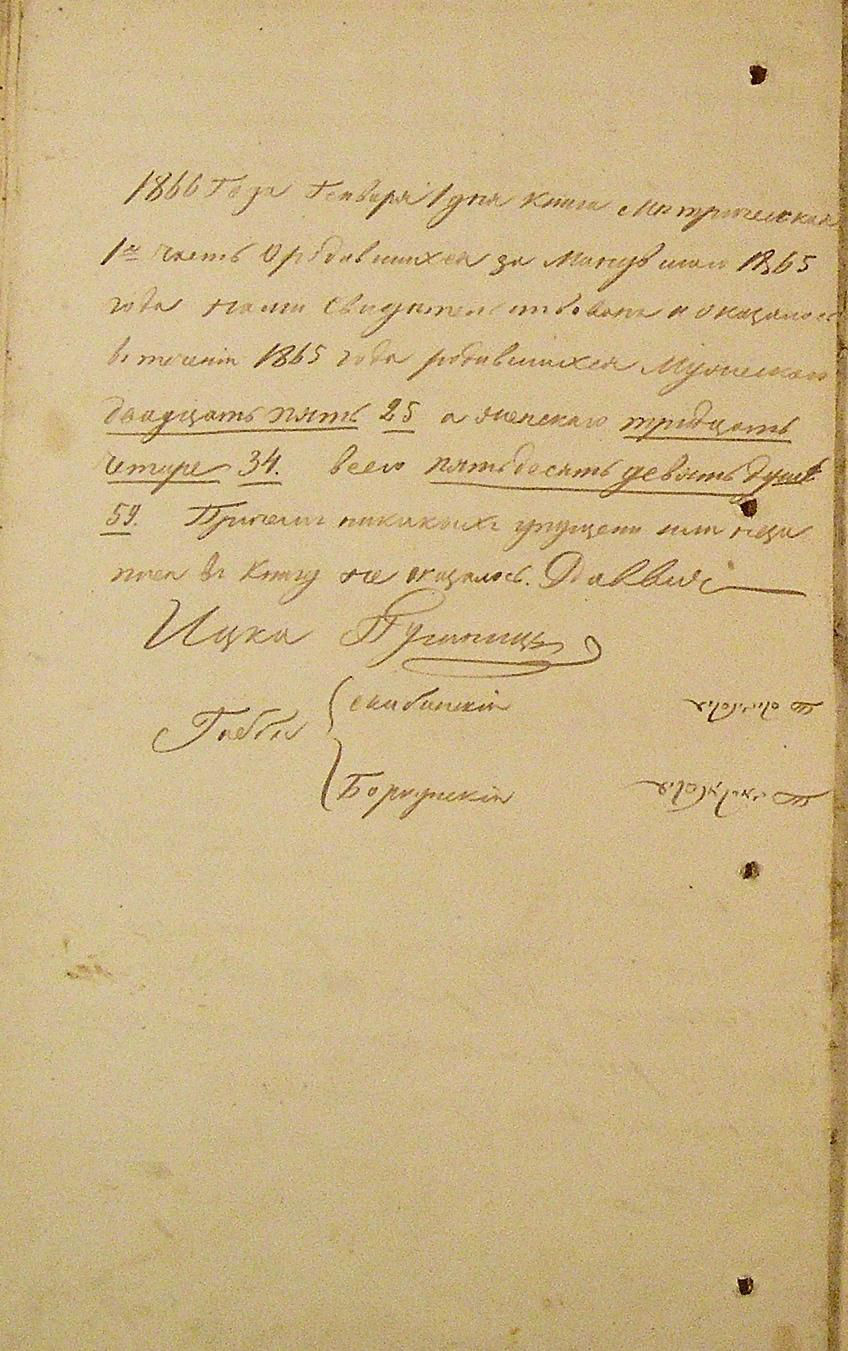 1866 Года Генваря 1 дня книга Метрическая
1я часть о родившихся за Минувшаго 1865
года нами Свидетельствована и оказалось
в течении 1865 года родившихся Мужескаго
двадцать пять 25 а женскаго тридцать
четыре 34. всего пятьдесять девять душъ
59. Причемъ никакихъ упущени или неза
писи въ книгу не оказалось. Раввинъ
Ицка
Габбе
Бородянскій